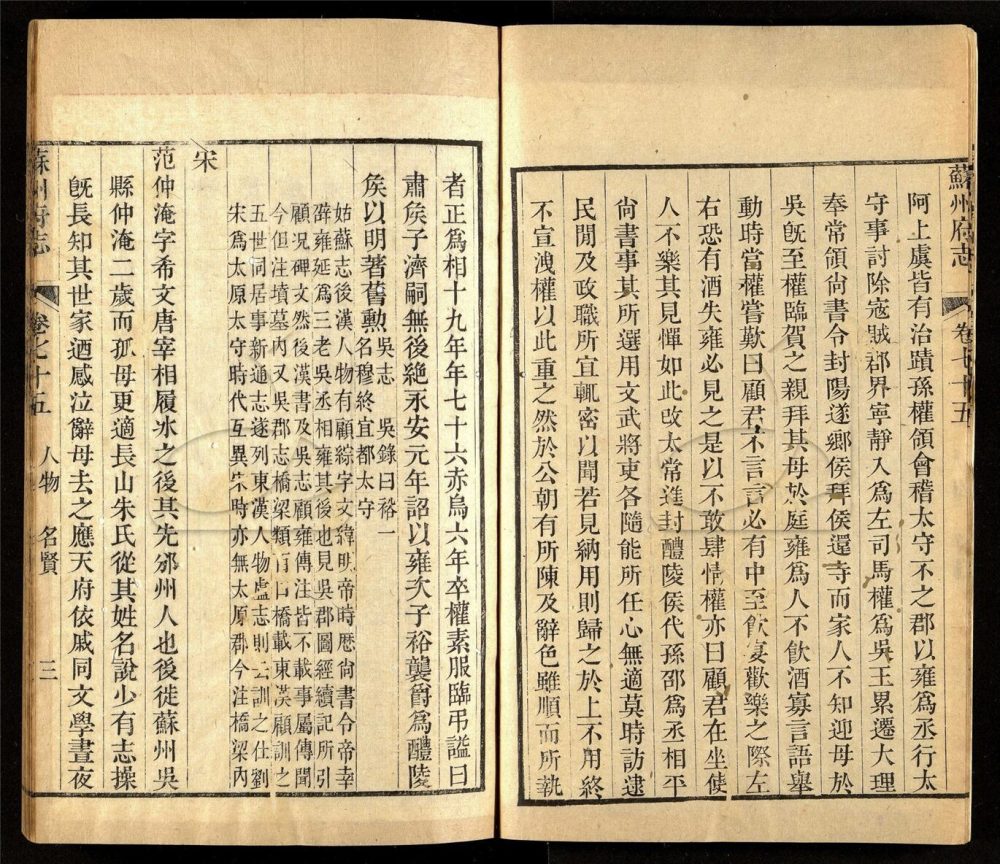 蘇州府志 卷七十五
阿上虞皆有治蹟孫權領會稽太守不之郡以雍爲丞行太
守事討除寇賊郡界寧靜入爲左司馬權爲吳王累遷大理
奉常領尙書令封陽遂鄉侯拜侯還寺而家人不知迎母於
吳旣至權臨賀之親拜其母於庭雍爲人不飮酒寡言語舉
動時當權嘗歎曰顧君不言言必有中至飮宴歡樂之際左
右恐有酒失雍必見之是以不敢肆情權亦曰顧君在坐使
人不樂其見憚如此改太常進封醴陵侯代孫邵爲丞相平
尙書事其所選用文武將吏各隨能所任心無適莫時訪逮
民閒及政職所宜輒密以聞若見納用則歸之於上不用終
不宣洩權以此重之然於公朝有所陳及辭色雖順而所執
者正爲相十九年年七十六赤烏六年卒權素服臨弔諡曰
肅矦子濟嗣無後絕永安元年詔以雍次子裕襲爵爲醴陵
矦以明著舊勳吳志 吳錄曰裕一
名穆終宜都太守
姑蘇志後漢人物有顧綜字文緯明帝時歷尙書令帝幸
辟雍延爲三老吳丞相雍其後也見吳郡圖經續記所引
顧况碑文然後漢書及吳志顧雍傳注皆不載事屬傳聞
今但注墳墓內又吳郡志橋梁類百口橋載東漢顧訓之
五世同居事新通志遂列東漢人物盧志則云訓之仕劉
宋爲太原太守時代互異宋時亦無太原郡今注橋梁內
宋
范仲淹字希文唐宰相履冰之後其先邠州人也後徙蘇州吳
縣仲淹二歲而孤母更適長山朱氏從其姓名說少有志操
旣長知其世家迺感泣辭母去之應天府依戚同文學晝夜
蘇州府志 卷七十五 人物 名賢 三